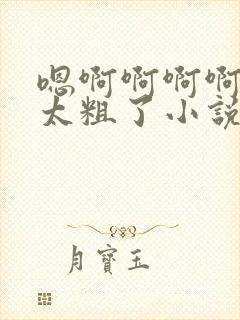 嗯啊啊啊啊
太粗了小説
月寶玉